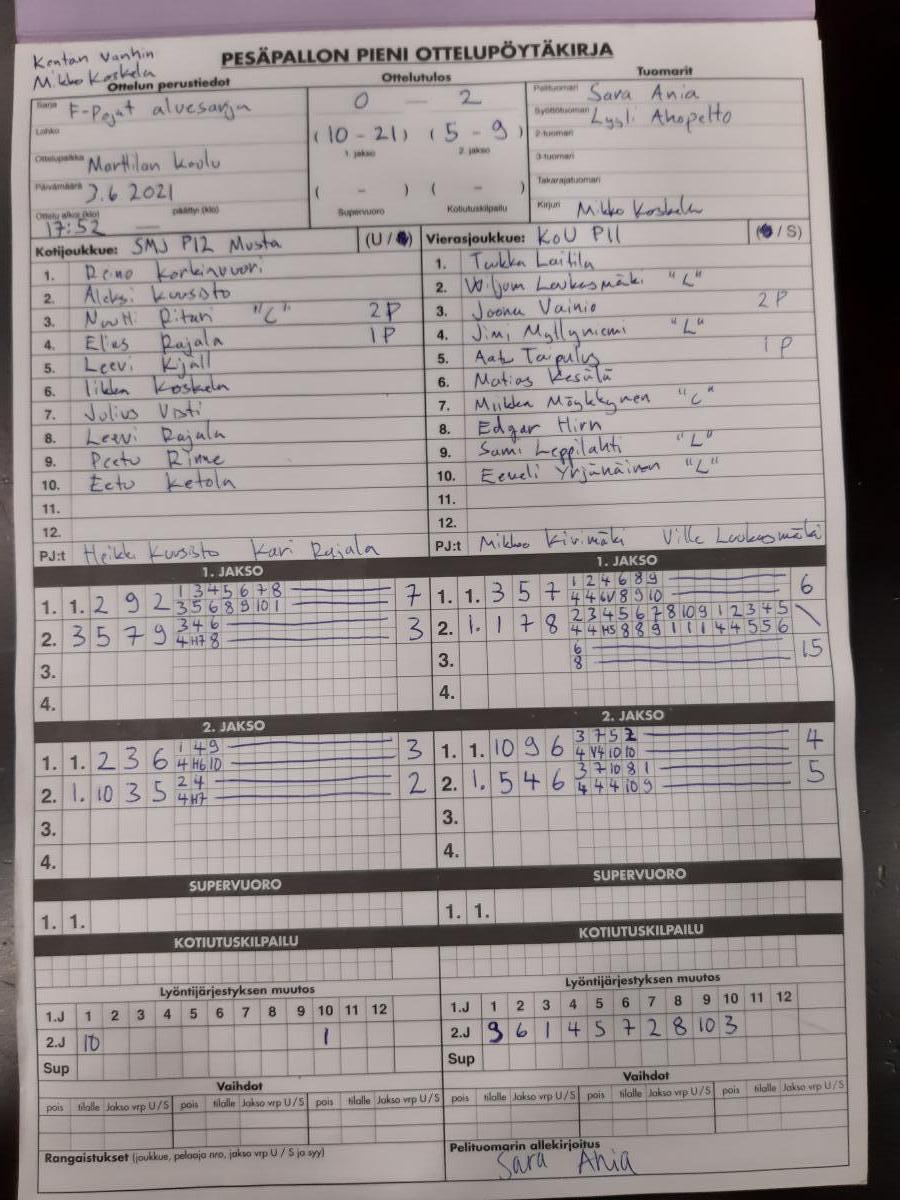 Kentän vanhin
Mikko Koskela
PESÄPALLON PIENI OTTELUPÖYTÄKIRJA
Ottelun perustiedot
Ottelutulos
Tuomarit
Sarja F-Pojat aluesarja
0 - 2
Pelituomari Sara Ania
Lohko
(10 - 21) (5 - 9)
Syöttötuomari Lyyli Ahopelto
1. jakso 2. jakso
2-tuomari
Ottelupaikka Marttilan koulu
3-tuomari
Päivämäärä 3.6 2021
( - ) ( - )
Takarajatuomari
Ottelu alkoi (klo) päättyi (klo)
17:52 —
Supervuoro Kotiutuskilpailu
Kirjuri Mikko Koskela
Kotijoukkue: SMJ P12 Musta (U / )
Vierasjoukkue: KoU P11 ( / S)
1. Reino Korkiavuori
2. Aleksi Kuusisto
3. Nuutti Ritari "C" 2P
4. Elias Rajala 1P
5. Leevi Kjäll
6. Iikka Koskela
7. Julius Visti
8. Leevi Rajala
9. Peetu Rinne
10. Eetu Ketola
11.
12.
PJ:t Heikki Kuusisto Kari Rajala
1. Tuukka Laitila
2. Viljam Laukasmäki "L"
3. Joona Vainio 2P
4. Jimi Myllyniemi "L"
5. Aatu Taipulus 1P
6. Matias Kesälä
7. Miikka Möykkynen "C"
8. Edgar Hirn
9. Sami Leppilahti "L"
10. Eemeli Yrjänäinen "L"
11.
12.
PJ:t Mikko Kivimäki Ville Laukasmäki
1. JAKSO
1. 1. 2 9 2 1 3 4 5 6 7 8 7
3 5 6 8 9 10 1
2. 3 5 7 9 3 4 6 3
4 H7 8
3.
4.
1. JAKSO
1. 1. 3 5 7 1 2 4 6 8 9 6
4 4 6V 8 9 10
2. 1. 1 7 8 2 3 4 5 6 7 8 10 9 1 2 3 4 5 \
4 4 H5 8 8 9 1 1 1 4 4 5 5 6
3. 6 15
8
4.
2. JAKSO
1. 1. 2 3 6 1 4 9 3
4 H6 10
2. 1. 10 3 5 2 4 2
4 H7
3.
4.
2. JAKSO
1. 1. 10 9 6 3 7 5 2 4
4 V4 10 10
2. 1. 5 4 6 3 7 10 8 1 5
4 4 4 10 9
3.
4.
SUPERVUORO
1. 1.
SUPERVUORO
1. 1.
KOTIUTUSKILPAILU
KOTIUTUSKILPAILU
Lyöntijärjestyksen muutos
1.J 1 2 3 4 5 6 7 8 9 10 11 12
2.J 10 1
Sup
Lyöntijärjestyksen muutos
1.J 1 2 3 4 5 6 7 8 9 10 11 12
2.J 9 6 1 4 5 7 2 8 10 3
Sup
Vaihdot
pois tilalle Jakso vrp U / S pois tilalle Jakso vrp U / S pois tilalle Jakso vrp U / S
Vaihdot
pois tilalle Jakso vrp U / S pois tilalle Jakso vrp U / S pois tilalle Jakso vrp U / S
Rangaistukset (joukkue, pelaaja nro, jakso vrp U / S ja syy)
Pelituomarin allekirjoitus
Sara Ania